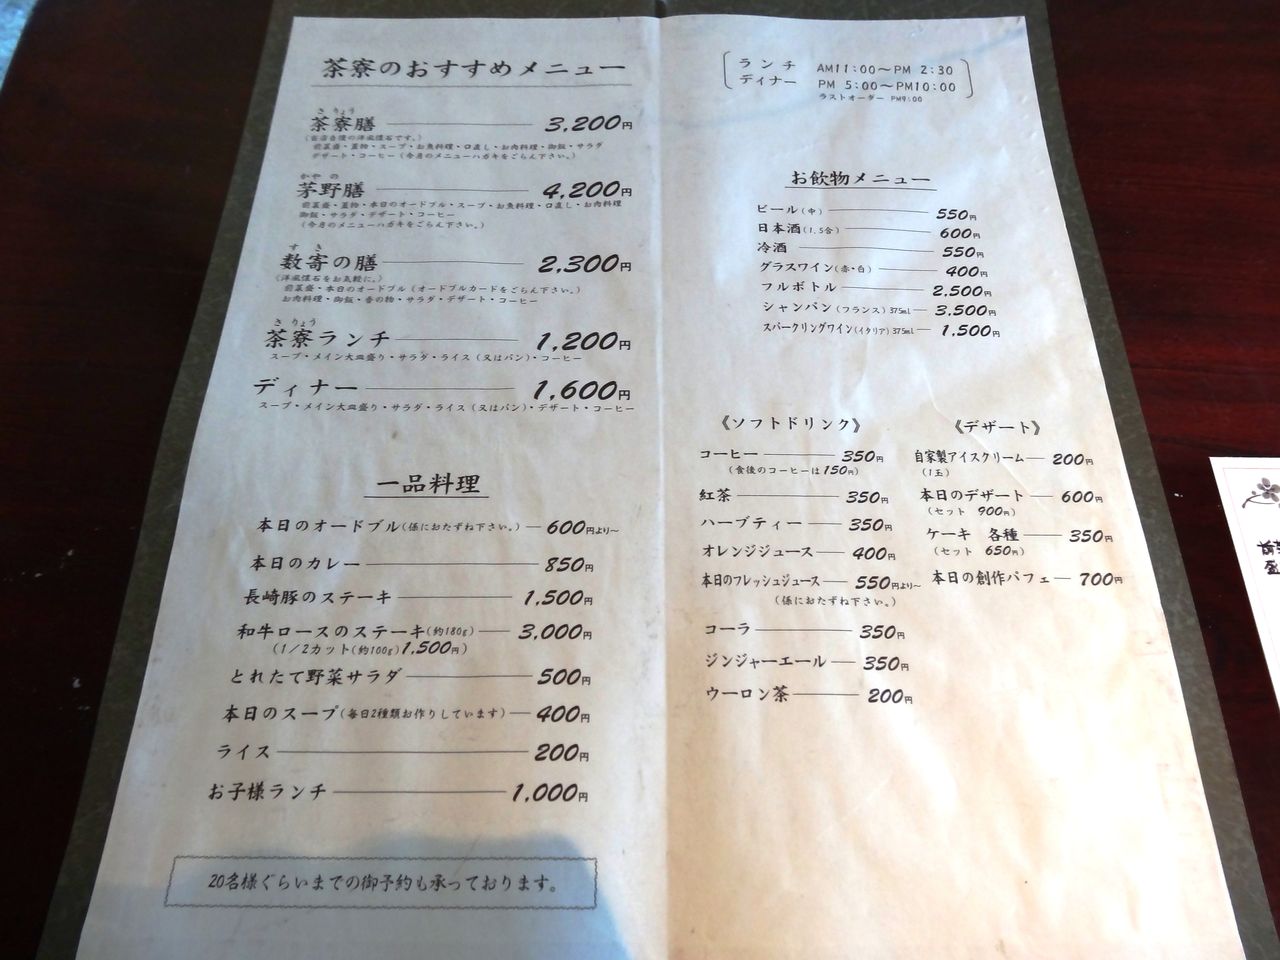 茶寮のおすすめメニュー
さりょう
茶寮膳 3,200円
(当店自慢の洋風懐石です。)
前菜盛・蓋物・スープ・お魚料理・口直し・お肉料理・御飯・サラダ
デザート・コーヒー(今月のメニューハガキをごらん下さい。)
かやの
茅野膳 4,200円
前菜盛・蓋物・本日のオードブル・スープ・お魚料理・口直し・お肉料理
御飯・サラダ・デザート・コーヒー
(今月のメニューハガキをごらん下さい。)
すき
数寄の膳 2,300円
(洋風懐石をお気軽に。)
前菜盛・本日のオードブル(オードブルカードをごらん下さい。)
お肉料理・御飯・香の物・サラダ・デザート・コーヒー
さりょう
茶寮ランチ 1,200円
スープ・メイン大皿盛り・サラダ・ライス(又はパン)・コーヒー
ディナー 1,600円
スープ・メイン大皿盛り・サラダ・ライス(又はパン)・デザート・コーヒー
一品料理
本日のオードブル(係におたずね下さい。) 600円より〜
本日のカレー 850円
長崎豚のステーキ 1,500円
和牛ロースのステーキ(約180g) 3,000円
(1/2カット(約100g)1,500円)
とれたて野菜サラダ 500円
本日のスープ(毎日2種類お作りしています) 400円
ライス 200円
お子様ランチ 1,000円
20名様ぐらいまでの御予約も承っております。
ランチ AM11:00〜PM 2:30
ディナー PM 5:00〜PM10:00
ラストオーダー PM9:00
お飲物メニュー
ビール(中) 550円
日本酒(1.5合) 600円
冷酒 550円
グラスワイン(赤・白) 400円
フルボトル 2,500円
シャンパン(フランス)375ml 3,500円
スパークリングワイン(イタリア)375ml 1,500円
《ソフトドリンク》
コーヒー 350円
(食後のコーヒーは150円)
紅茶 350円
ハーブティー 350円
オレンジジュース 400円
本日のフレッシュジュース 550円より〜
(係におたずね下さい。)
コーラ 350円
ジンジャーエール 350円
ウーロン茶 200円
《デザート》
自家製アイスクリーム 200円
(1玉)
本日のデザート 600円
(セット 900円)
ケーキ 各種 350円
(セット 650円)
本日の創作パフェ 700円